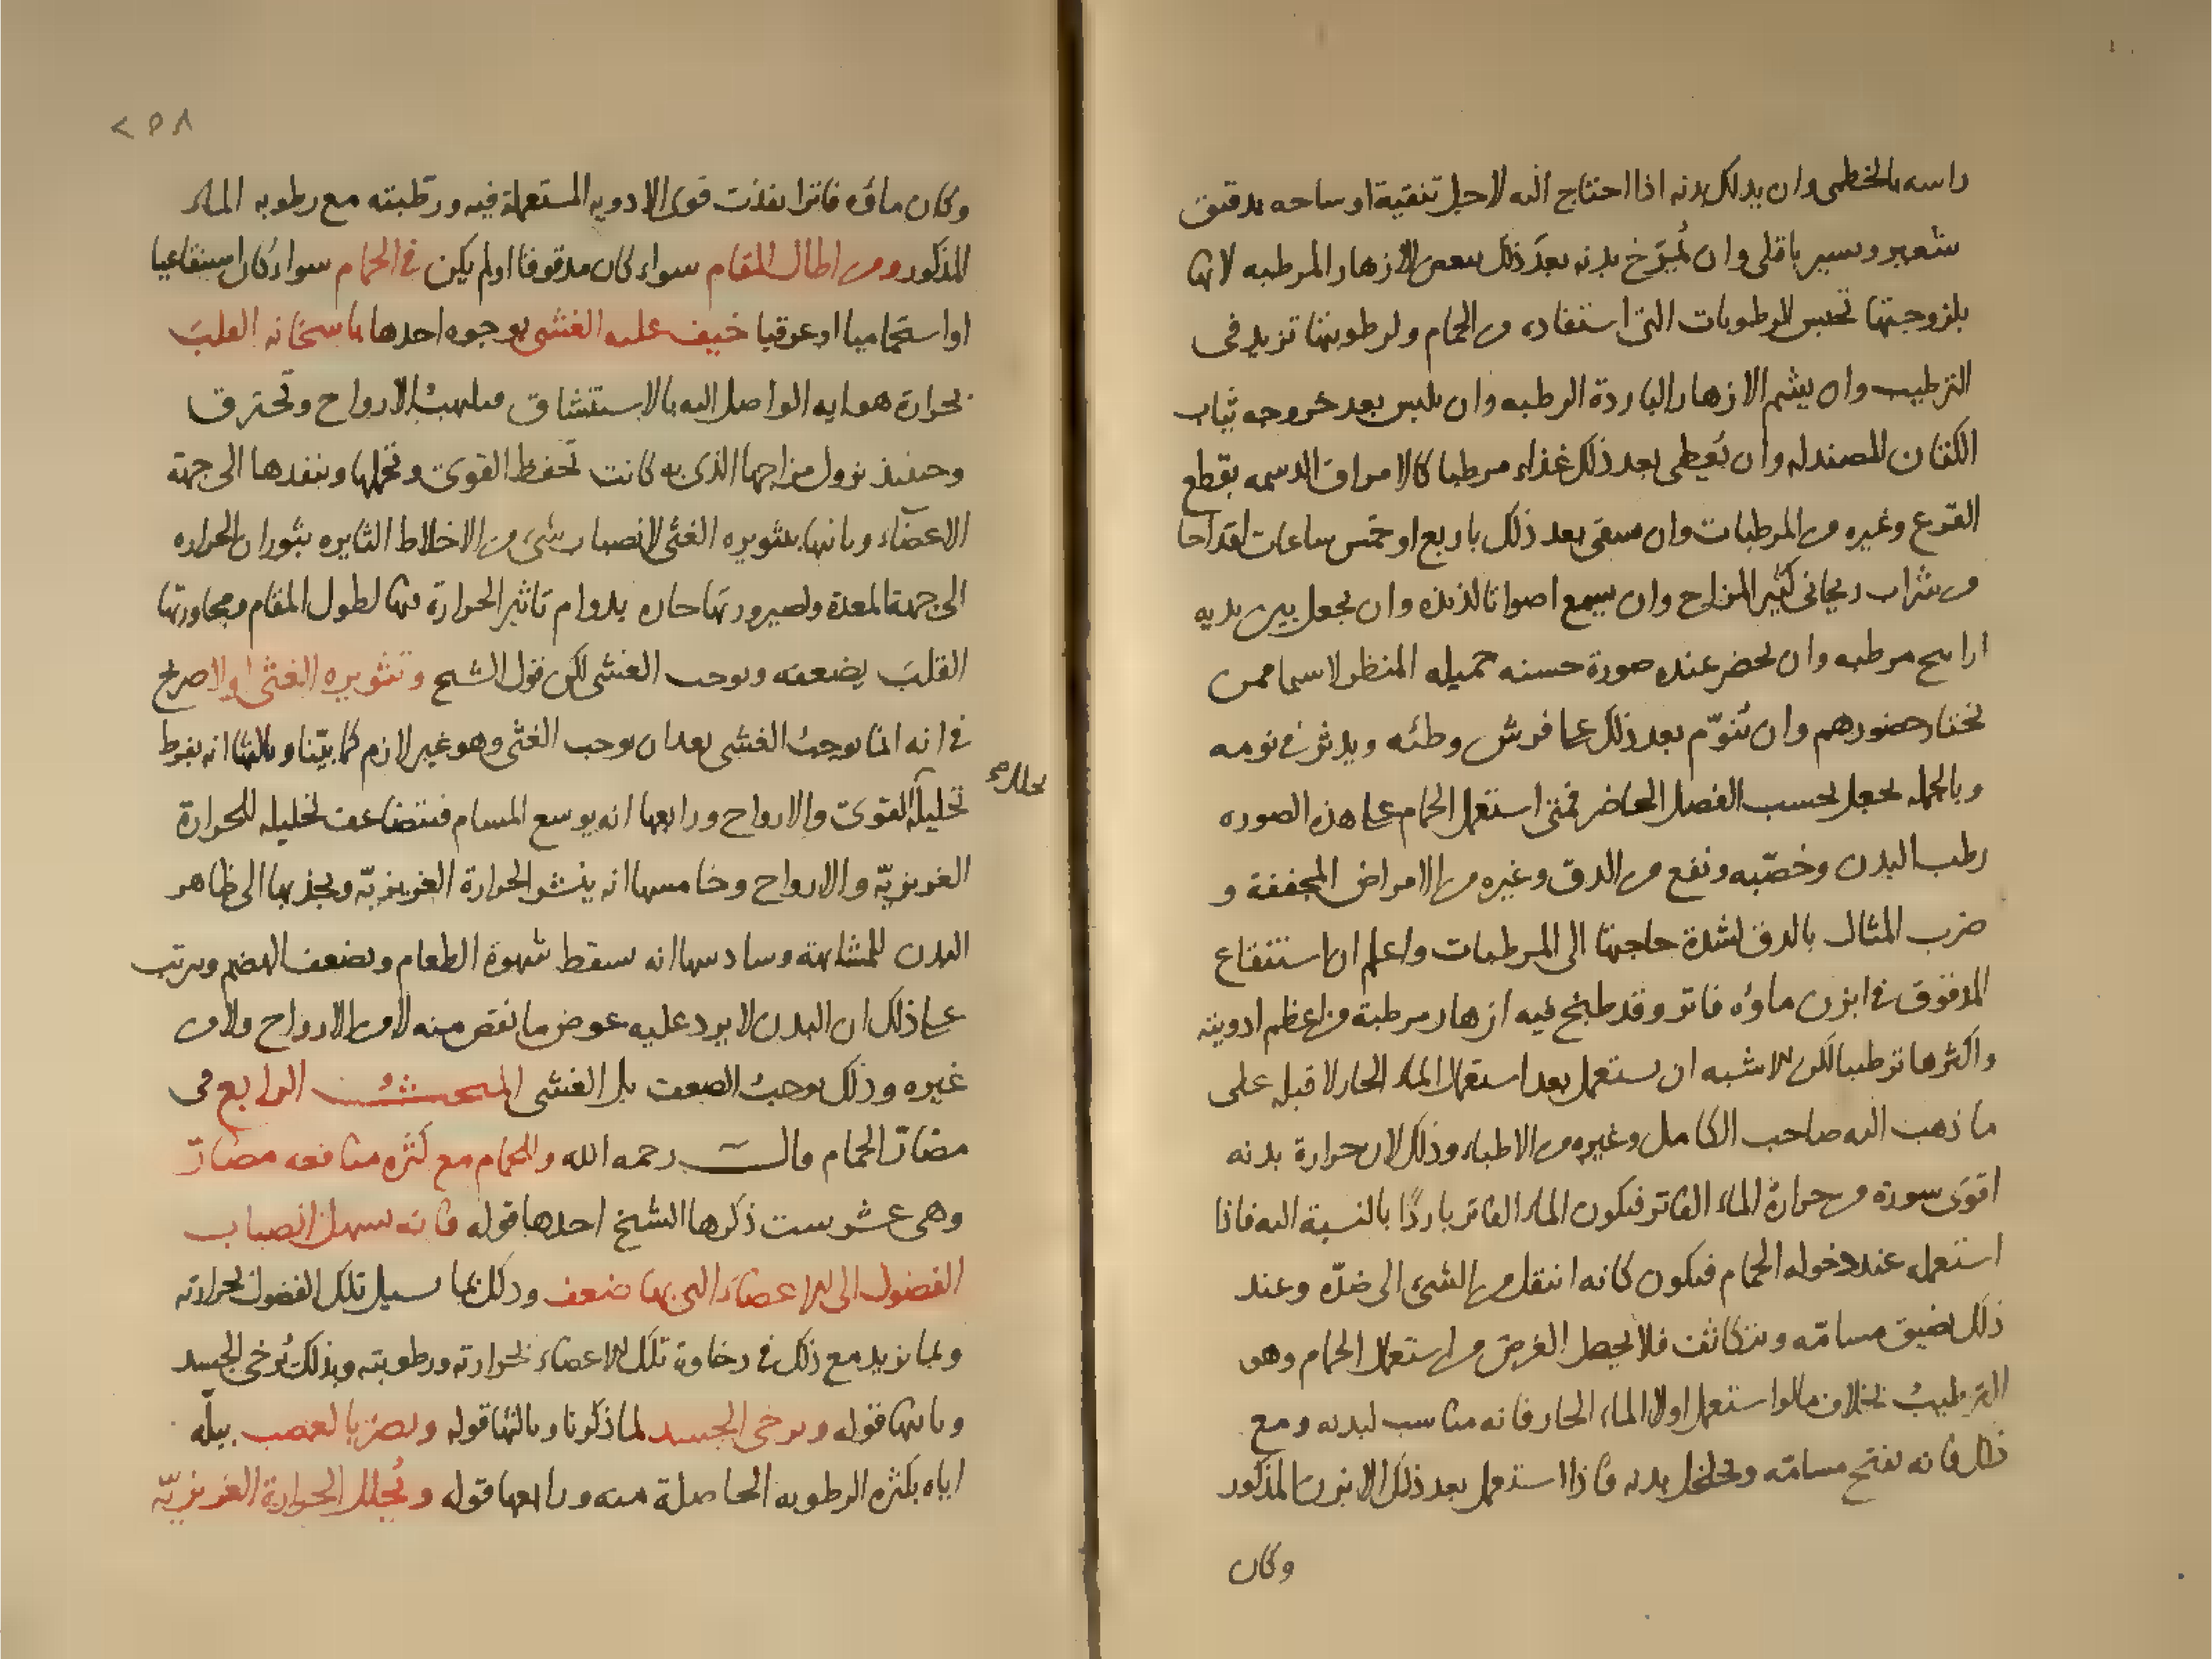 راسه بالخطمى وان يدلك بدنه اذا احتاج اليه لاجل تنقية اوساخه بدقيق
شعير ويسير باقلى وان يُمرّخ بدنه بعد ذلك ببعض الازهار المرطبه لانها
بلزوجتها تحبس الرطوبات التى استفاده من الحمام ولرطوبتها تزيد فى
الترطيب وان يشم الازهار الباردة الرطبه وان يلبس بعد خروجه ثياب
الكتان المصندله وان يُعطى بعد ذلك غذاء مرطبا كالامراق الدسمه بقطع
القرع وغيره من المرطبات وان يسقى بعد ذلك باربع او خمس ساعات اقداحا
من شراب ريحانى كثير المزاج وان يسمع اصواتا لذيذه وان يجعل بين يديه
اراييح مرطبه وان يحضر عنده صورة حسنه جميله المنظر لا سيما ممن
يختار حضورهم وان يُنوّم بعد ذلك على فرش وطئه ويدثر فى نومه
وبالجمله يجعل بحسب الفصل الحاضر فمتى استعمل الحمام على هذه الصوره
رطب البدن وخصّبه ونفع من الدق وغيره من الامراض المجففة و
ضرب المثال بالدق لشدة حاجتها الى المرطبات واعلم ان استنقاع
المدقوق فى ابزن ماؤه فاتر وقد طبخ فيه ازهار مرطبة من اعظم ادويته
واكثرها ترطيبا لكن الاشبه ان يستعمل بعد استعمال الماء الحار لا قبله على
ما ذهب اليه صاحب الكامل وغيره من الاطباء وذلك لان حرارة بدنه
اقوى سورة من حرارة الماء الفاتر فيكون الماء الفاتر باردًا بالنسبة اليه فاذا
استعمله عند دخوله الحمام فيكون كانه انتقل من الشئ الى ضدّه وعند
ذلك يضيق مسامّه ويتكاثف فلا يحصل الغرض من استعمال الحمام وهو
الترطيب بخلاف ما لو استعمل اولا الماء الحار فانه مناسب لبدنه ومع
ذلك فانه يفتح مسامّه ويخلخل بدنه فاذا استعمل بعد ذلك الابزن المذكور
وكان
٢٥٨
وكان ماؤه فاترا نفذت قوى الادويه المستعملة فيه ورطبته مع رطوبه الماء
المذكور ومن اطال المقام سواء كان مدقوقا او لم يكن فى الحمام سواء كان استنقاعيا
او استحماميا او عرقيا خيف عليه الغشى بوجوه احدها باسخانه القلب
بحرارة هوايه الواصل اليه بالاستنشاق فيلهب الارواح وتحترق
وحينئذ يزول مزاجها الذى به كانت تحفظ القوى وتحملها وينفدها الى جهة
الاعضاء وثانيها بتثويره الغثى لانصباب شئ من الاخلاط الثايره بثوران الحراره
الى جهة المعدة ولصيرورتها حاره بدوام تاثير الحرارة فيها لطول المقام ومجاورتها
القلب يضعفه ويوجب الغشى لكن قول الشيخ وتثويره الغثى اولا صريح
فى انه انما يوجب الغشى بعد ان يوجب الغثى وهو غير لازم كما بيّنا وثالثها انه يفرط
تحليله القوى والارواح ورابعها انه يوسع المسام فيتضاعف تحليله للحرارة
الغريزيّة والارواح وخامسها انه ينشر الحرارة الغريزيّة ويجذبها الى ظاهر
البدن للمشابهة وسادسها انه يسقط شهوة الطعام ويضعف الهضم ويترتب
على ذلك ان البدن لا يرد عليه عوض ما نقص منه لا من الارواح ولا من
غيره وذلك يوجب الضعف بل الغشى المبحث الرابع فى
مضارّ الحمام قال رحمه الله وللحمام مع كثره منافعه مضارّ
وهى عشر ست ذكرها الشيخ احدها قوله فانه يسهل انصباب
الفضول الى الاعضاء التى بها ضعف وذلك بما يسيل تلك الفضول بحرارته
وبما يزيد مع ذلك فى رخاوة تلك الاعضاء بحرارته ورطوبته وبذلك يُرخى الجسد
وثانيها قوله ويرخى الجسد لما ذكرنا وثالثها قوله ويضرّ بالعصب ببلّه
اياه بكثره الرطوبه الحاصلة منه ورابعها قوله ويُحلل الحرارة الغريزيّة